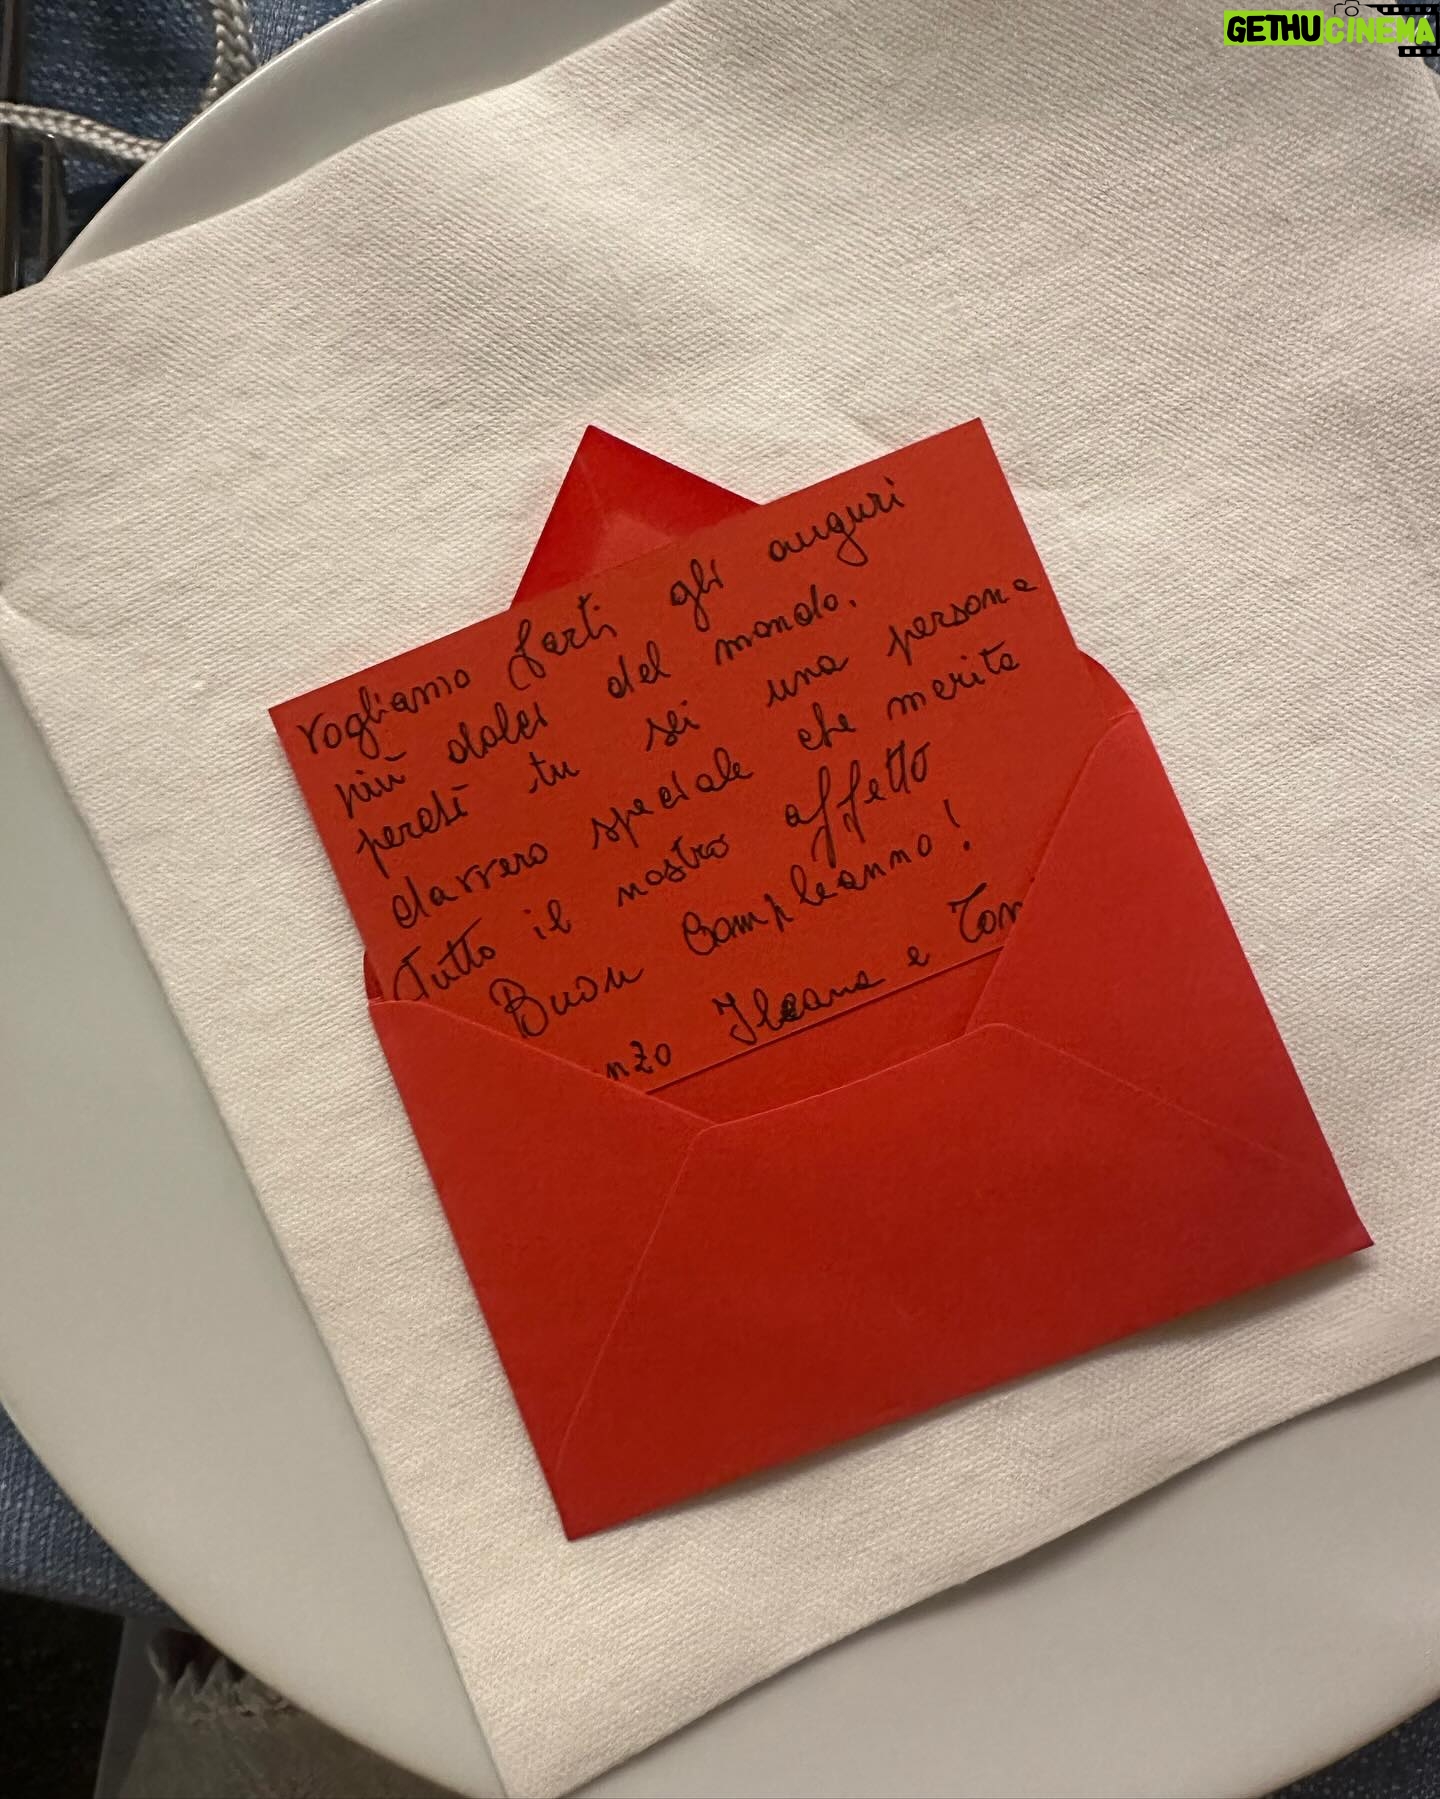 GETHUCINEMA
Vogliamo farti gli auguri
più dolci del mondo.
perché tu sei una persona
davvero speciale che merita
tutto il nostro affetto
Buon Compleanno!
nzo Ileana e Ton